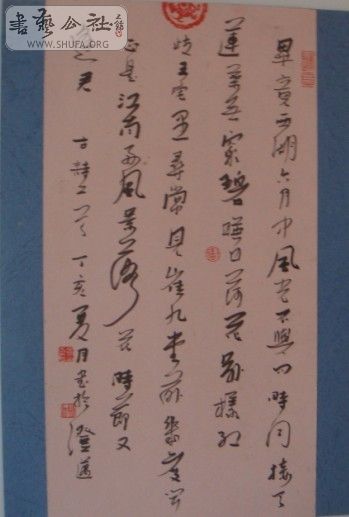 書藝公社
WWW.SHUFA.ORG
畢竟西湖六月中風光不與四時同接天
蓮葉無窮碧暎日荷花別樣紅
岐王宅里尋常見崔九堂前幾度聞
正是江南好風景落花時節又
逢君 古詩二首 丁亥夏月書於澄